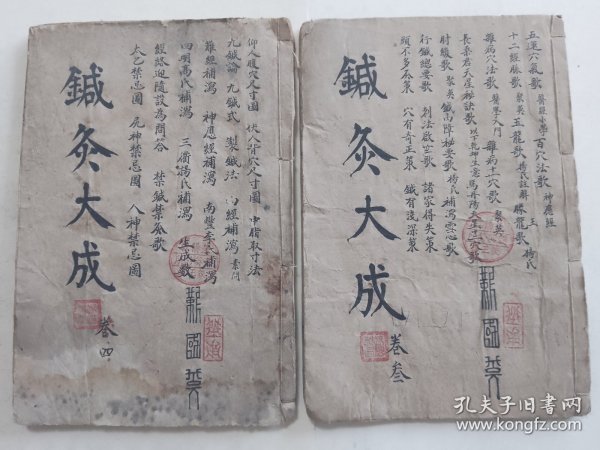 仰人腹穴尺寸圖 伏人背穴尺寸圖 中指取寸法
九鍼論 九鍼式 製鍼法 內經補瀉 素問
難經補瀉 神應經補瀉 南豐李氏補瀉
四明高氏補瀉 三衢楊氏補瀉 生成數
經絡迎隨設為問答 禁鍼禁灸歌
太乙禁忌圖 尻神禁忌圖 人神禁忌圖
鍼灸大成
卷四
五運六氣歌 醫經小學 百穴法歌 神應經
十二經脉歌 聚英 玉龍歌 楊氏註解 勝玉歌 楊氏
雜病穴法歌 醫學入門 雜病十一穴歌 聚英
長桑君天星秘訣歌 以下乾坤生意 馬丹陽天星十二穴歌
肘後歌 聚英 鍼向障秘要歌 楊氏補瀉雲心歌
行鍼總要歌 刺法啟玄歌 諸家得失策
頭不多灸策 穴有奇正策 鍼有淺深策
鍼灸大成
卷叁
孔夫子旧书网
www.kongfz.com